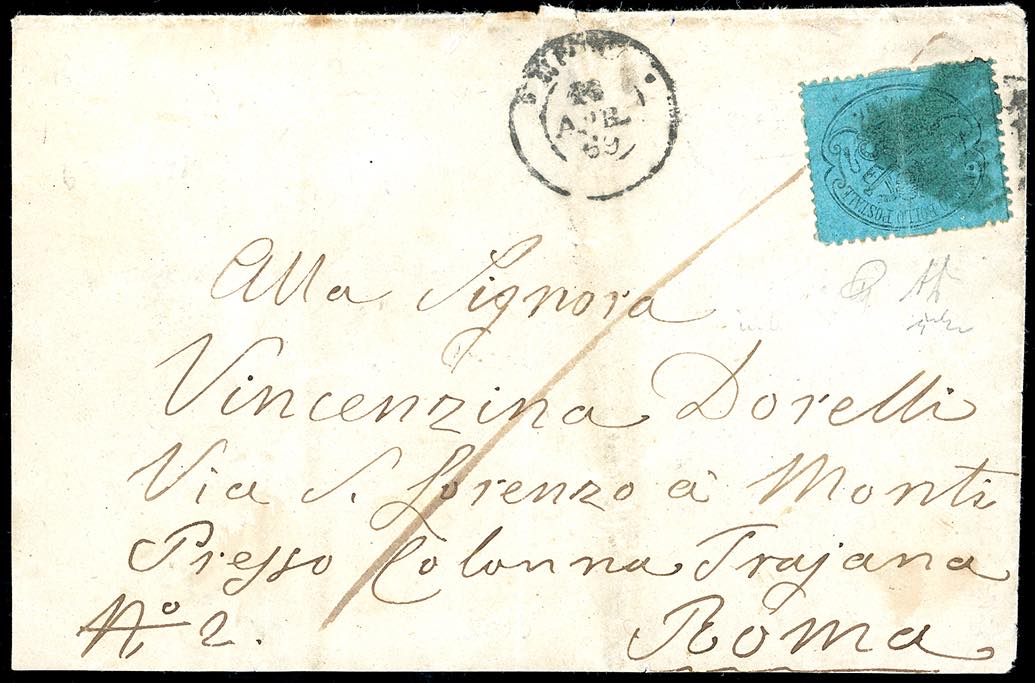 26
APR.
69
BOLLO POSTALE
Alla Signora
Vincenzina Dorelli
Via S. Lorenzo à Monti
Presso Colonna Trajana
No 2.
Roma